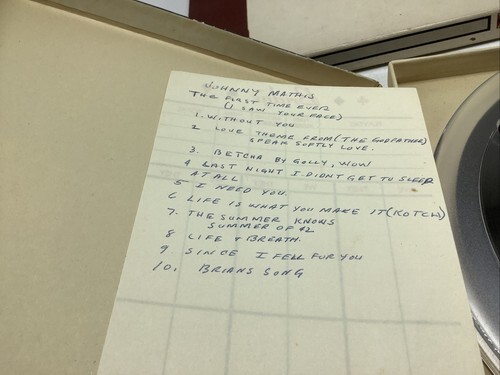 JOHNNY MATHIS
THE FIRST TIME EVER
(I SAW YOUR FACE)
1. WITHOUT YOU
2 LOVE THEME FROM (THE GODFATHER)
SPEAK SOFTLY LOVE.
3. BETCHA BY GOLLY, WOW
4 LAST NIGHT I DIDNT GET TO SLEEP
AT ALL
5 I NEED YOU.
6 LIFE IS WHAT YOU MAKE IT (KOTCH)
7. THE SUMMER KNOWS
SUMMER OF 42
8 LIFE & BREATH.
9 SINCE I FELL FOR YOU
10. BRIANS SONG